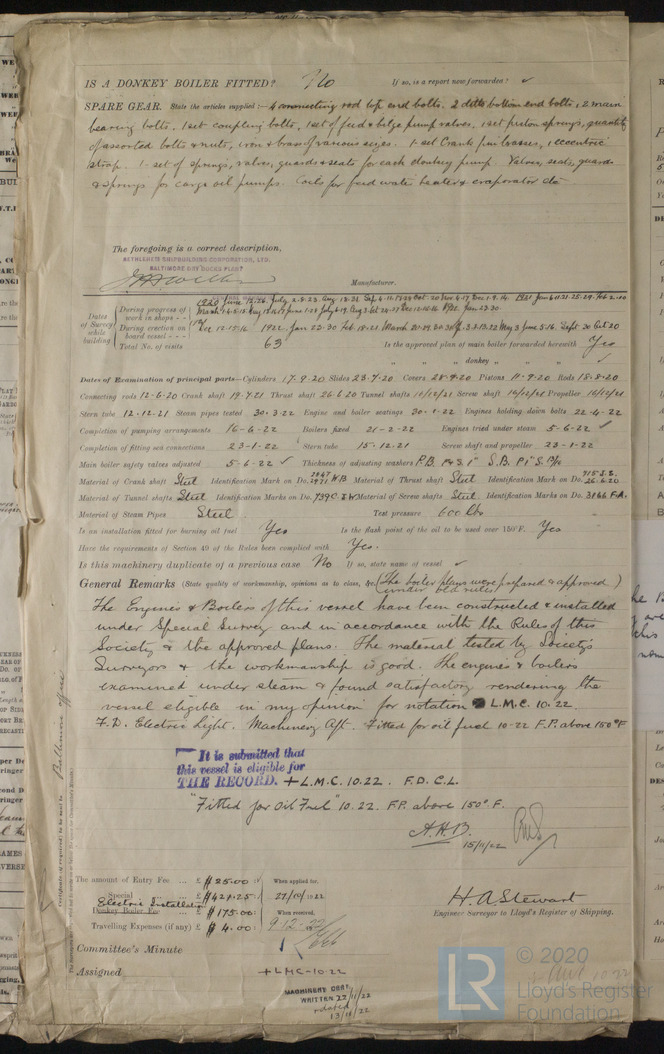 IS A DONKEY BOILER FITTED? No If so, is a report now forwarded? ✓
SPARE GEAR. State the articles supplied:— 4 connecting rod top end bolts. 2 ditto bottom end bolts, 2 main
bearing bolts. 1 set coupling bolts, 1 set of feed & bilge pump valves, 1 set piston springs, quantity
of assorted bolts & nuts, iron & brass of various sizes. 1 set Crank pin brasses, 1 eccentric
strap. 1 set of springs, valves, guards & seats for each donkey pump. Valves, seats, guards
& springs for cargo oil pumps. Coils for feed water heater & evaporator &c
The foregoing is a correct description,
BETHLEHEM SHIPBUILDING CORPORATION, LTD.
BALTIMORE DRY DOCKS PLANT
Manufacturer.
Dates of Survey while building
During progress of work in shops - -
During erection on board vessel - - -
Total No. of visits 63
Is the approved plan of main boiler forwarded herewith Yes
" " " donkey " " " ✓
Dates of Examination of principal parts—Cylinders 17-9-20 Slides 23-7-20 Covers 28-9-20 Pistons 11-9-20 Rods 18-8-20
Connecting rods 12-6-20 Crank shaft 19-7-21 Thrust shaft 26-6-20 Tunnel shafts 10/12/21 Screw shaft 16/12/21 Propeller 16/12/21
Stern tube 12-12-21 Steam pipes tested 30-3-22 Engine and boiler seatings 30-1-22 Engines holding down bolts 22-4-22
Completion of pumping arrangements 16-6-22 Boilers fixed 21-2-22 Engines tried under steam 5-6-22 ✓
Completion of fitting sea connections 23-1-22 Stern tube 15-12-21 Screw shaft and propeller 23-1-22
Main boiler safety valves adjusted 5-6-22 ✓ Thickness of adjusting washers
Material of Crank shaft Steel Identification Mark on Do. 2971 WB Material of Thrust shaft Steel Identification Mark on Do. 26-6-20
Material of Tunnel shafts Steel Identification Marks on Do. Material of Screw shafts Steel Identification Marks on Do. 3166 F.A.
Material of Steam Pipes Steel Test pressure 600 lbs
Is an installation fitted for burning oil fuel Yes Is the flash point of the oil to be used over 150°F. Yes
Have the requirements of Section 49 of the Rules been complied with Yes.
Is this machinery duplicate of a previous case No If so, state name of vessel ✓
General Remarks (State quality of workmanship, opinions as to class, &c. (The boiler plans were prepared & approved under old rules)
The Engines & Boilers of this vessel have been constructed & installed
under Special Survey and in accordance with the Rules of this
Society & the approved plans. The material tested by Society's
Surveyors & the workmanship is good. The engines & boilers
examined under steam & found satisfactory rendering the
vessel eligible in my opinion for notation L.M.C. 10-22.
F.D. Electric Light. Machinery Aft. Fitted for oil fuel 10-22 F.P. above 150°F
It is submitted that
this vessel is eligible for
THE RECORD. + L.M.C. 10.22. F.D. C.L.
"Fitted for Oil Fuel" 10.22. F.P. above 150° F.
A.H.B.
15/11/22
The amount of Entry Fee ... £ $25.00 When applied for,
Special £ $424.25 27/10/1922
Electric Installation
Donkey Boiler Fee ... £ $175.00 When received,
Travelling Expenses (if any) £ $4.00 9-12-22
H. A Stewart
Engineer Surveyor to Lloyd's Register of Shipping.
Committee's Minute
Assigned + LMC-10-22
MACHINERY CERT.
WRITTEN 22/11/22
dated
13/11/22
© 2020
Lloyd's Register
Foundation
LR
Baltimore office